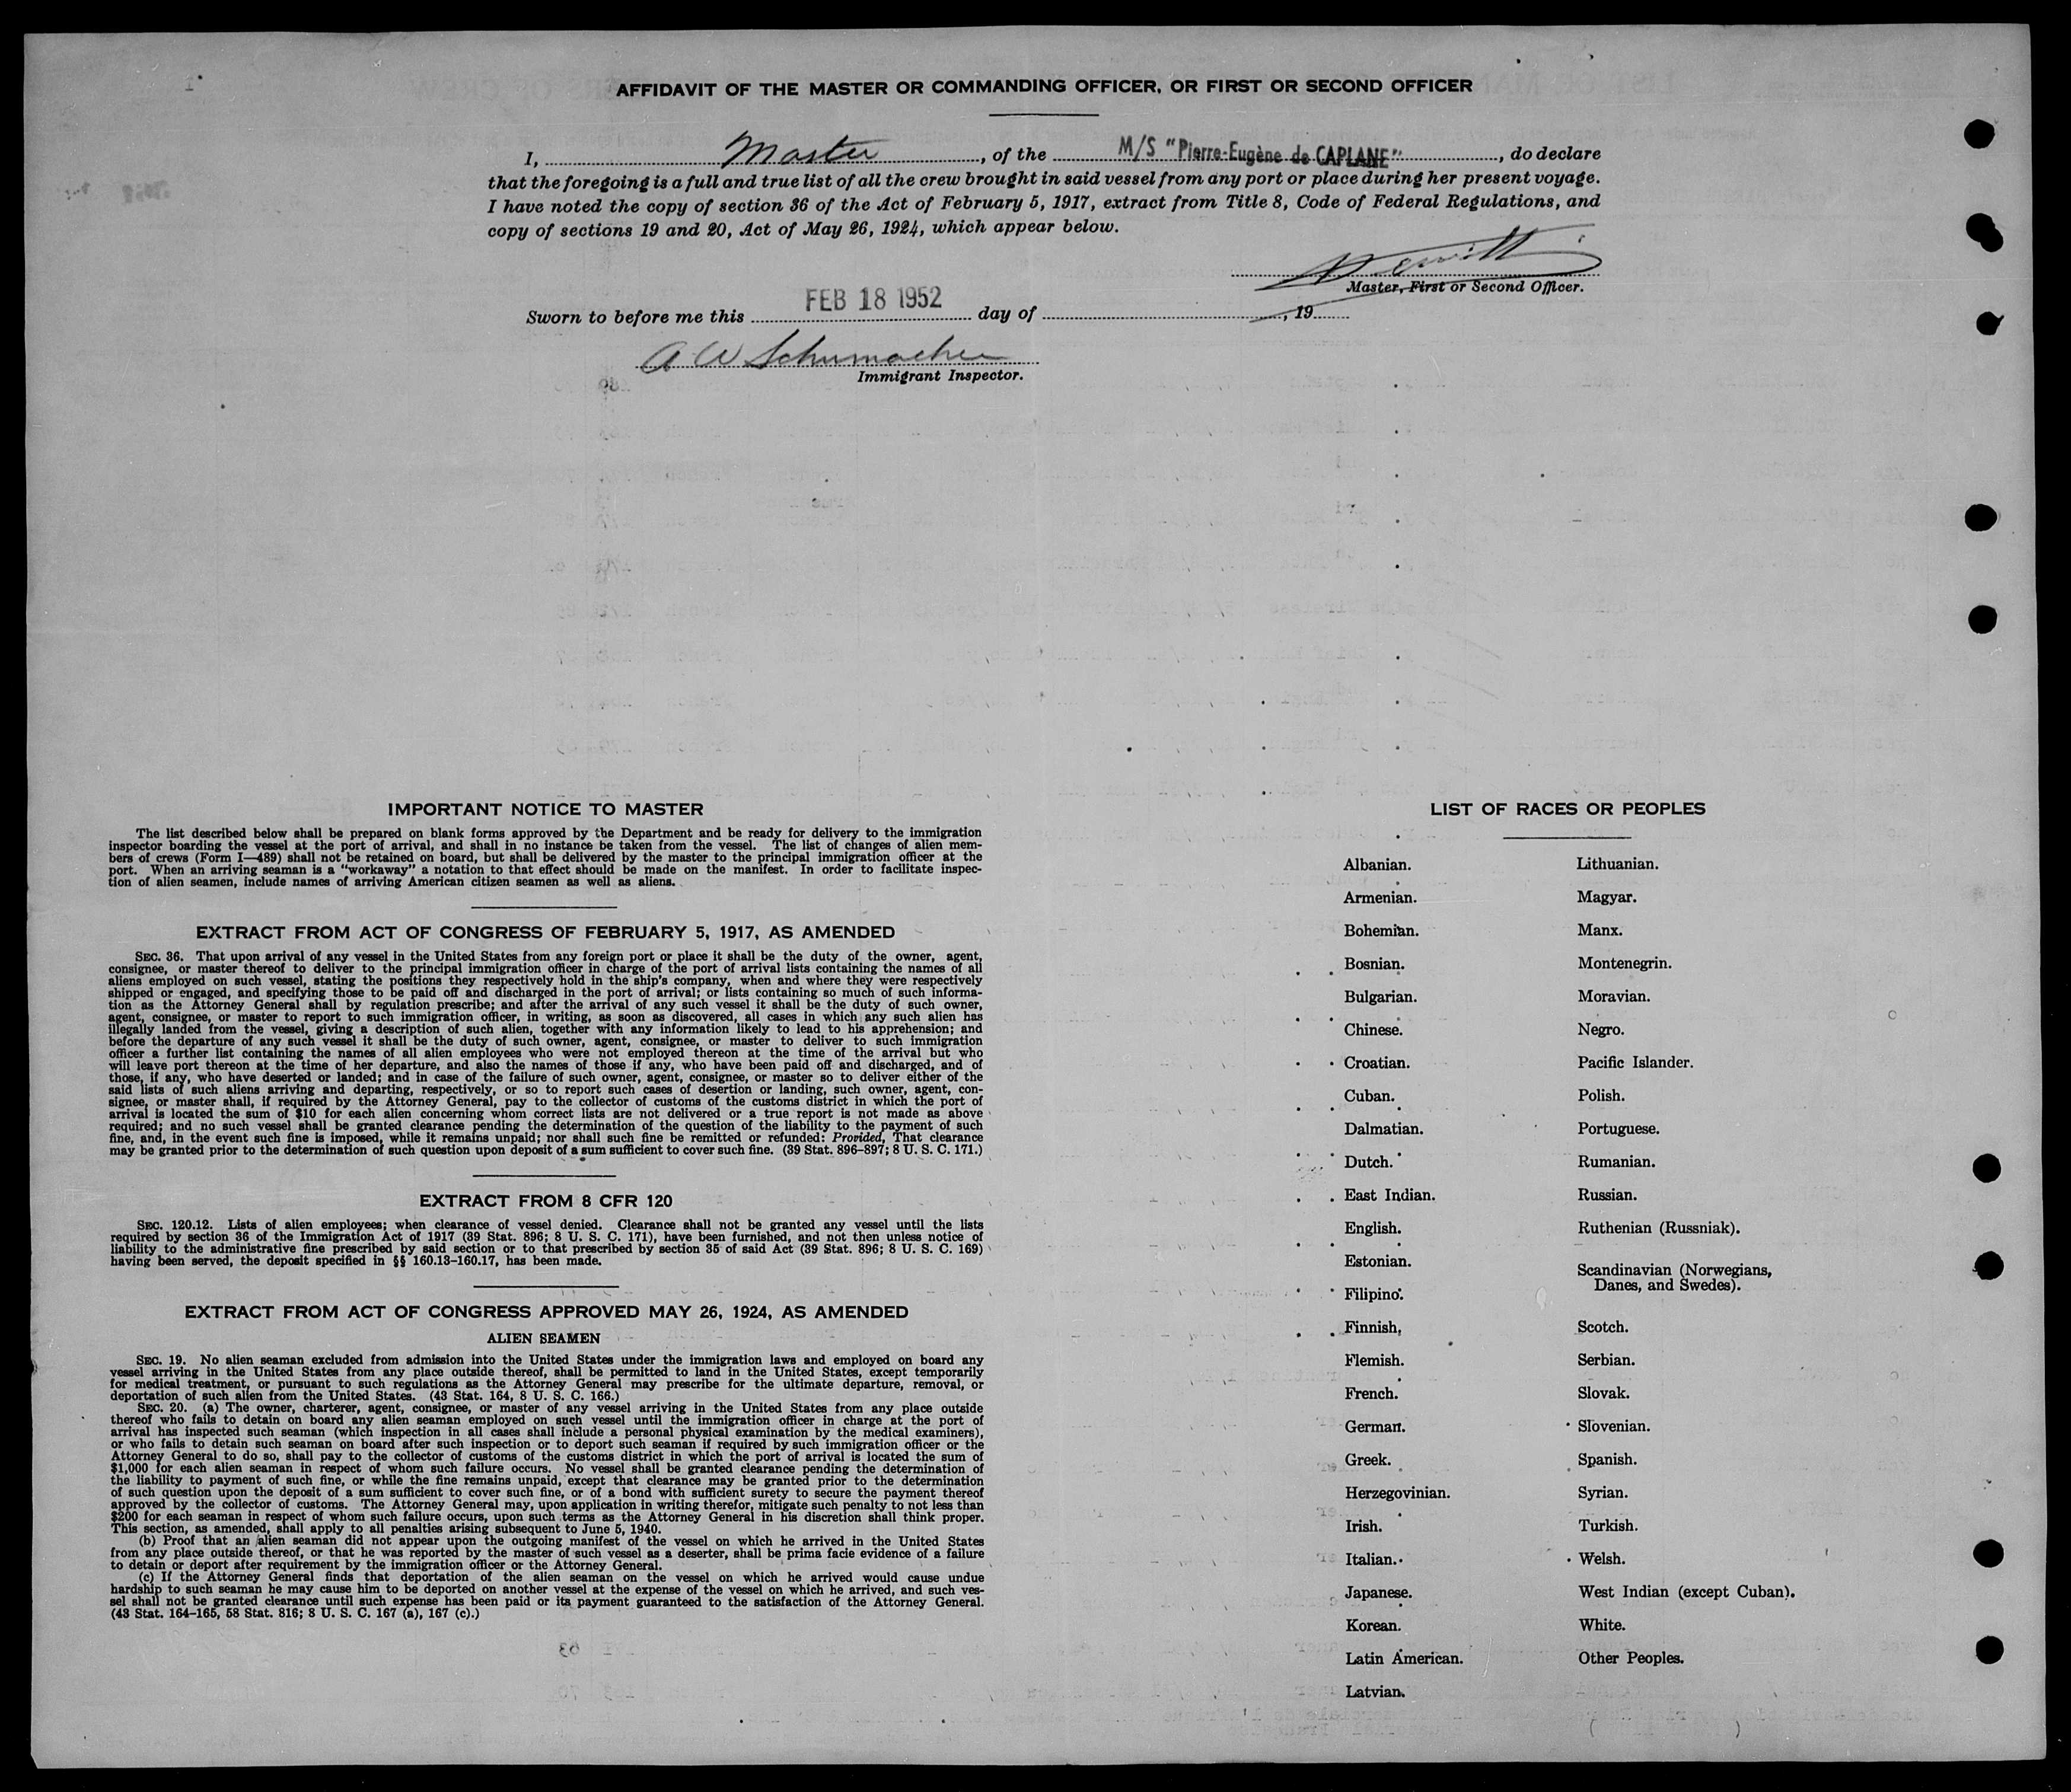 AFFIDAVIT OF THE MASTER OR COMMANDING OFFICER, OR FIRST OR SECOND OFFICER
I, Master, of the M/S "Pierre-Eugène de CAPLANE", do declare
that the foregoing is a full and true list of all the crew brought in said vessel from any port or place during her present voyage.
I have noted the copy of section 36 of the Act of February 5, 1917, extract from Title 8, Code of Federal Regulations, and
copy of sections 19 and 20, Act of May 26, 1924, which appear below.
Master, First or Second Officer.
Sworn to before me this FEB 18 1952 day of , 19
A W Schumacher
Immigrant Inspector.
IMPORTANT NOTICE TO MASTER
The list described below shall be prepared on blank forms approved by the Department and be ready for delivery to the immigration
inspector boarding the vessel at the port of arrival, and shall in no instance be taken from the vessel. The list of changes of alien mem-
bers of crews (Form I—489) shall not be retained on board, but shall be delivered by the master to the principal immigration officer at the
port. When an arriving seaman is a "workaway" a notation to that effect should be made on the manifest. In order to facilitate inspec-
tion of alien seamen, include names of arriving American citizen seamen as well as aliens.
EXTRACT FROM ACT OF CONGRESS OF FEBRUARY 5, 1917, AS AMENDED
SEC. 36. That upon arrival of any vessel in the United States from any foreign port or place it shall be the duty of the owner, agent,
consignee, or master thereof to deliver to the principal immigration officer in charge of the port of arrival lists containing the names of all
aliens employed on such vessel, stating the positions they respectively hold in the ship's company, when and where they were respectively
shipped or engaged, and specifying those to be paid off and discharged in the port of arrival; or lists containing so much of such informa-
tion as the Attorney General shall by regulation prescribe; and after the arrival of any such vessel it shall be the duty of such owner,
agent, consignee, or master to report to such immigration officer, in writing, as soon as discovered, all cases in which any such alien has
illegally landed from the vessel, giving a description of such alien, together with any information likely to lead to his apprehension; and
before the departure of any such vessel it shall be the duty of such owner, agent, consignee, or master to deliver to such immigration
officer a further list containing the names of all alien employees who were not employed thereon at the time of the arrival but who
will leave port thereon at the time of her departure, and also the names of those if any, who have been paid off and discharged, and of
those, if any, who have deserted or landed; and in case of the failure of such owner, agent, consignee, or master so to deliver either of the
said lists of such aliens arriving and departing, respectively, or so to report such cases of desertion or landing, such owner, agent, con-
signee, or master shall, if required by the Attorney General, pay to the collector of customs of the customs district in which the port of
arrival is located the sum of $10 for each alien concerning whom correct lists are not delivered or a true report is not made as above
required; and no such vessel shall be granted clearance pending the determination of the question of the liability to the payment of such
fine, and, in the event such fine is imposed, while it remains unpaid; nor shall such fine be remitted or refunded: Provided, That clearance
may be granted prior to the determination of such question upon deposit of a sum sufficient to cover such fine. (39 Stat. 896-897; 8 U. S. C. 171.)
EXTRACT FROM 8 CFR 120
SEC. 120.12. Lists of alien employees; when clearance of vessel denied. Clearance shall not be granted any vessel until the lists
required by section 36 of the Immigration Act of 1917 (39 Stat. 896; 8 U. S. C. 171), have been furnished, and not then unless notice of
liability to the administrative fine prescribed by said section or to that prescribed by section 35 of said Act (39 Stat. 896; 8 U. S. C. 169)
having been served, the deposit specified in §§ 160.13-160.17, has been made.
EXTRACT FROM ACT OF CONGRESS APPROVED MAY 26, 1924, AS AMENDED
ALIEN SEAMEN
SEC. 19. No alien seaman excluded from admission into the United States under the immigration laws and employed on board any
vessel arriving in the United States from any place outside thereof, shall be permitted to land in the United States, except temporarily
for medical treatment, or pursuant to such regulations as the Attorney General may prescribe for the ultimate departure, removal, or
deportation of such alien from the United States. (43 Stat. 164, 8 U. S. C. 166.)
SEC. 20. (a) The owner, charterer, agent, consignee, or master of any vessel arriving in the United States from any place outside
thereof who fails to detain on board any alien seaman employed on such vessel until the immigration officer in charge at the port of
arrival has inspected such seaman (which inspection in all cases shall include a personal physical examination by the medical examiners),
or who fails to detain such seaman on board after such inspection or to deport such seaman if required by such immigration officer or the
Attorney General to do so, shall pay to the collector of customs of the customs district in which the port of arrival is located the sum of
$1,000 for each alien seaman in respect of whom such failure occurs. No vessel shall be granted clearance pending the determination of
the liability to payment of such fine, or while the fine remains unpaid, except that clearance may be granted prior to the determination
of such question upon the deposit of a sum sufficient to cover such fine, or of a bond with sufficient surety to secure the payment thereof
approved by the collector of customs. The Attorney General may, upon application in writing therefor, mitigate such penalty to not less than
$200 for each seaman in respect of whom such failure occurs, upon such terms as the Attorney General in his discretion shall think proper.
This section, as amended, shall apply to all penalties arising subsequent to June 5, 1940.
(b) Proof that an alien seaman did not appear upon the outgoing manifest of the vessel on which he arrived in the United States
from any place outside thereof, or that he was reported by the master of such vessel as a deserter, shall be prima facie evidence of a failure
to detain or deport after requirement by the immigration officer or the Attorney General.
(c) If the Attorney General finds that deportation of the alien seaman on the vessel on which he arrived would cause undue
hardship to such seaman he may cause him to be deported on another vessel at the expense of the vessel on which he arrived, and such ves-
sel shall not be granted clearance until such expense has been paid or its payment guaranteed to the satisfaction of the Attorney General.
(43 Stat. 164-165, 58 Stat. 816; 8 U. S. C. 167 (a), 167 (c).)
LIST OF RACES OR PEOPLES
Albanian.
Armenian.
Bohemian.
Bosnian.
Bulgarian.
Chinese.
Croatian.
Cuban.
Dalmatian.
Dutch.
East Indian.
English.
Estonian.
Filipino.
Finnish.
Flemish.
French.
German.
Greek.
Herzegovinian.
Irish.
Italian.
Japanese.
Korean.
Latin American.
Latvian.
Lithuanian.
Magyar.
Manx.
Montenegrin.
Moravian.
Negro.
Pacific Islander.
Polish.
Portuguese.
Rumanian.
Russian.
Ruthenian (Russniak).
Scandinavian (Norwegians,
Danes, and Swedes).
Scotch.
Serbian.
Slovak.
Slovenian.
Spanish.
Syrian.
Turkish.
Welsh.
West Indian (except Cuban).
White.
Other Peoples.